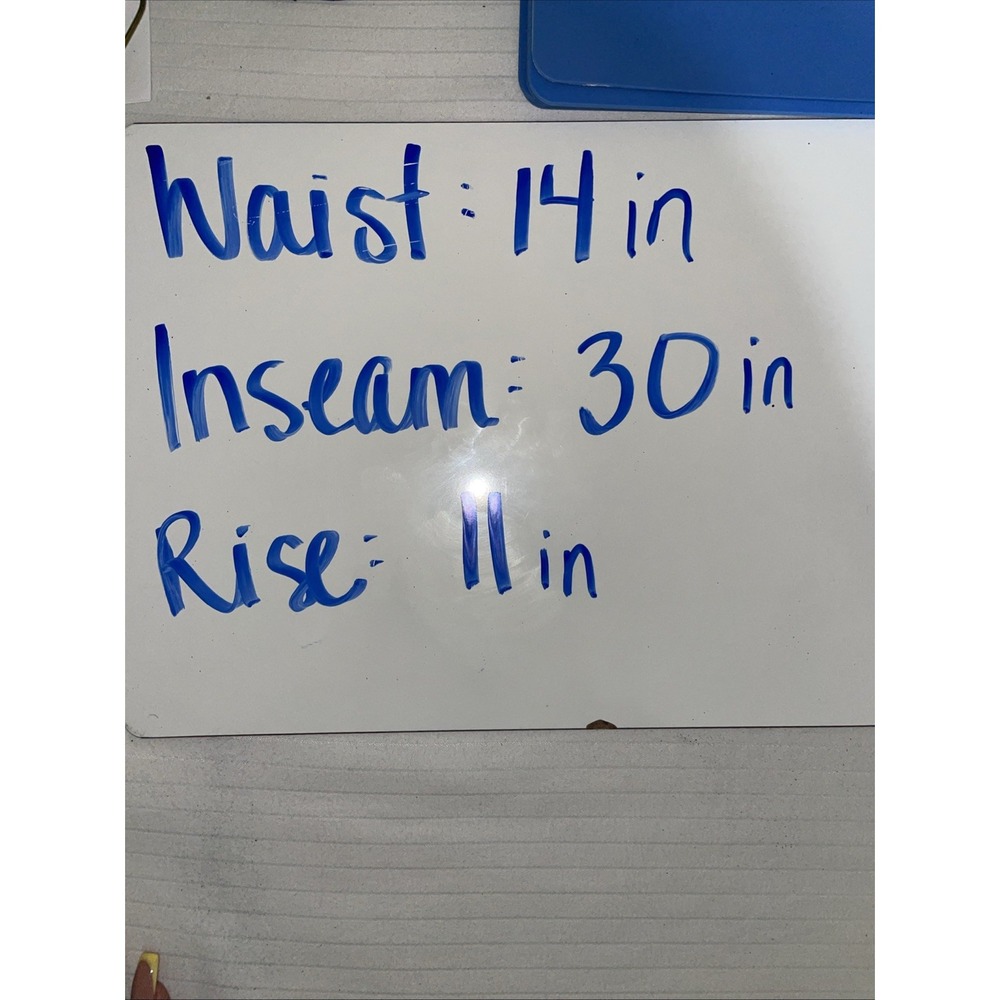 Waist: 14 in
Inseam: 30 in
Rise: 11 in